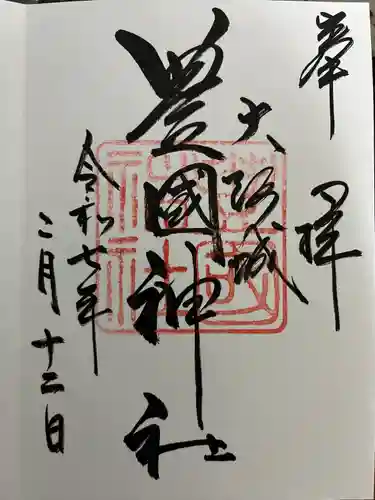 奉拝
大阪城
豊國神社
令和七年
二月十二日